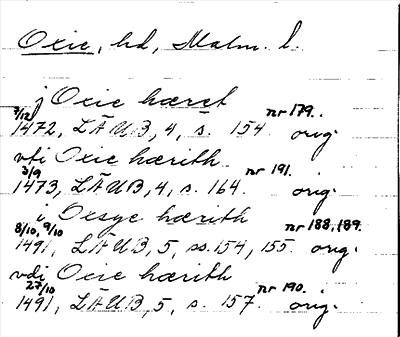 Oxie, hd, Malm. l.
j Oxie hæret
7/12 nr 179.
1472, LÄUB, 4, s. 154. orig.
vti Oxie hærith
3/9 nr 191.
1473, LÄUB, 4, s. 164. orig.
i Oesye hærith
8/10, 9/10 nr 188, 189.
1491, LÄUB, 5, ss. 154, 155. orig.
vdi Oxie hærith
27/10 nr 190.
1491, LÄUB, 5, s. 157. orig.